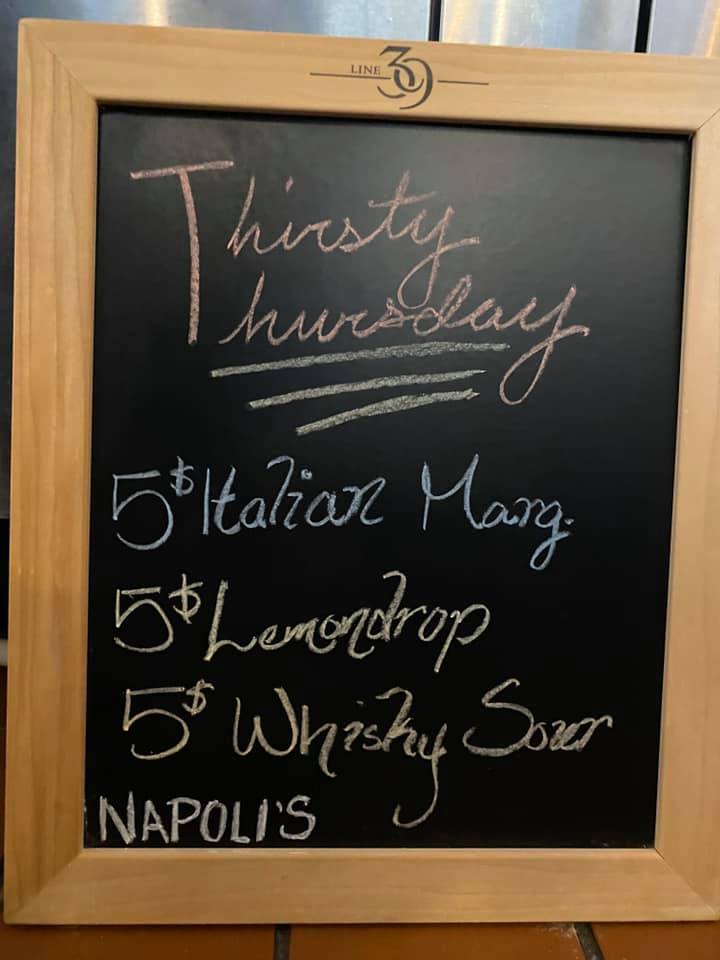 LINE 39
Thirsty
Thursday
5$ Italian Marg.
5$ Lemondrop
5$ Whisky Sour
NAPOLI'S